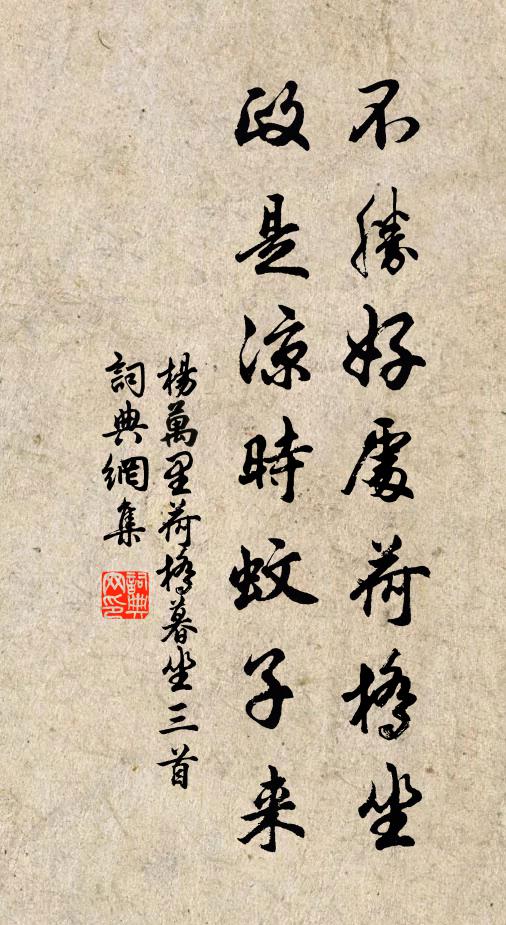 不勝好處荷橋坐
政是涼時蚊子来
楊萬里荷橋暮坐三首
詞典網集
詞典網印